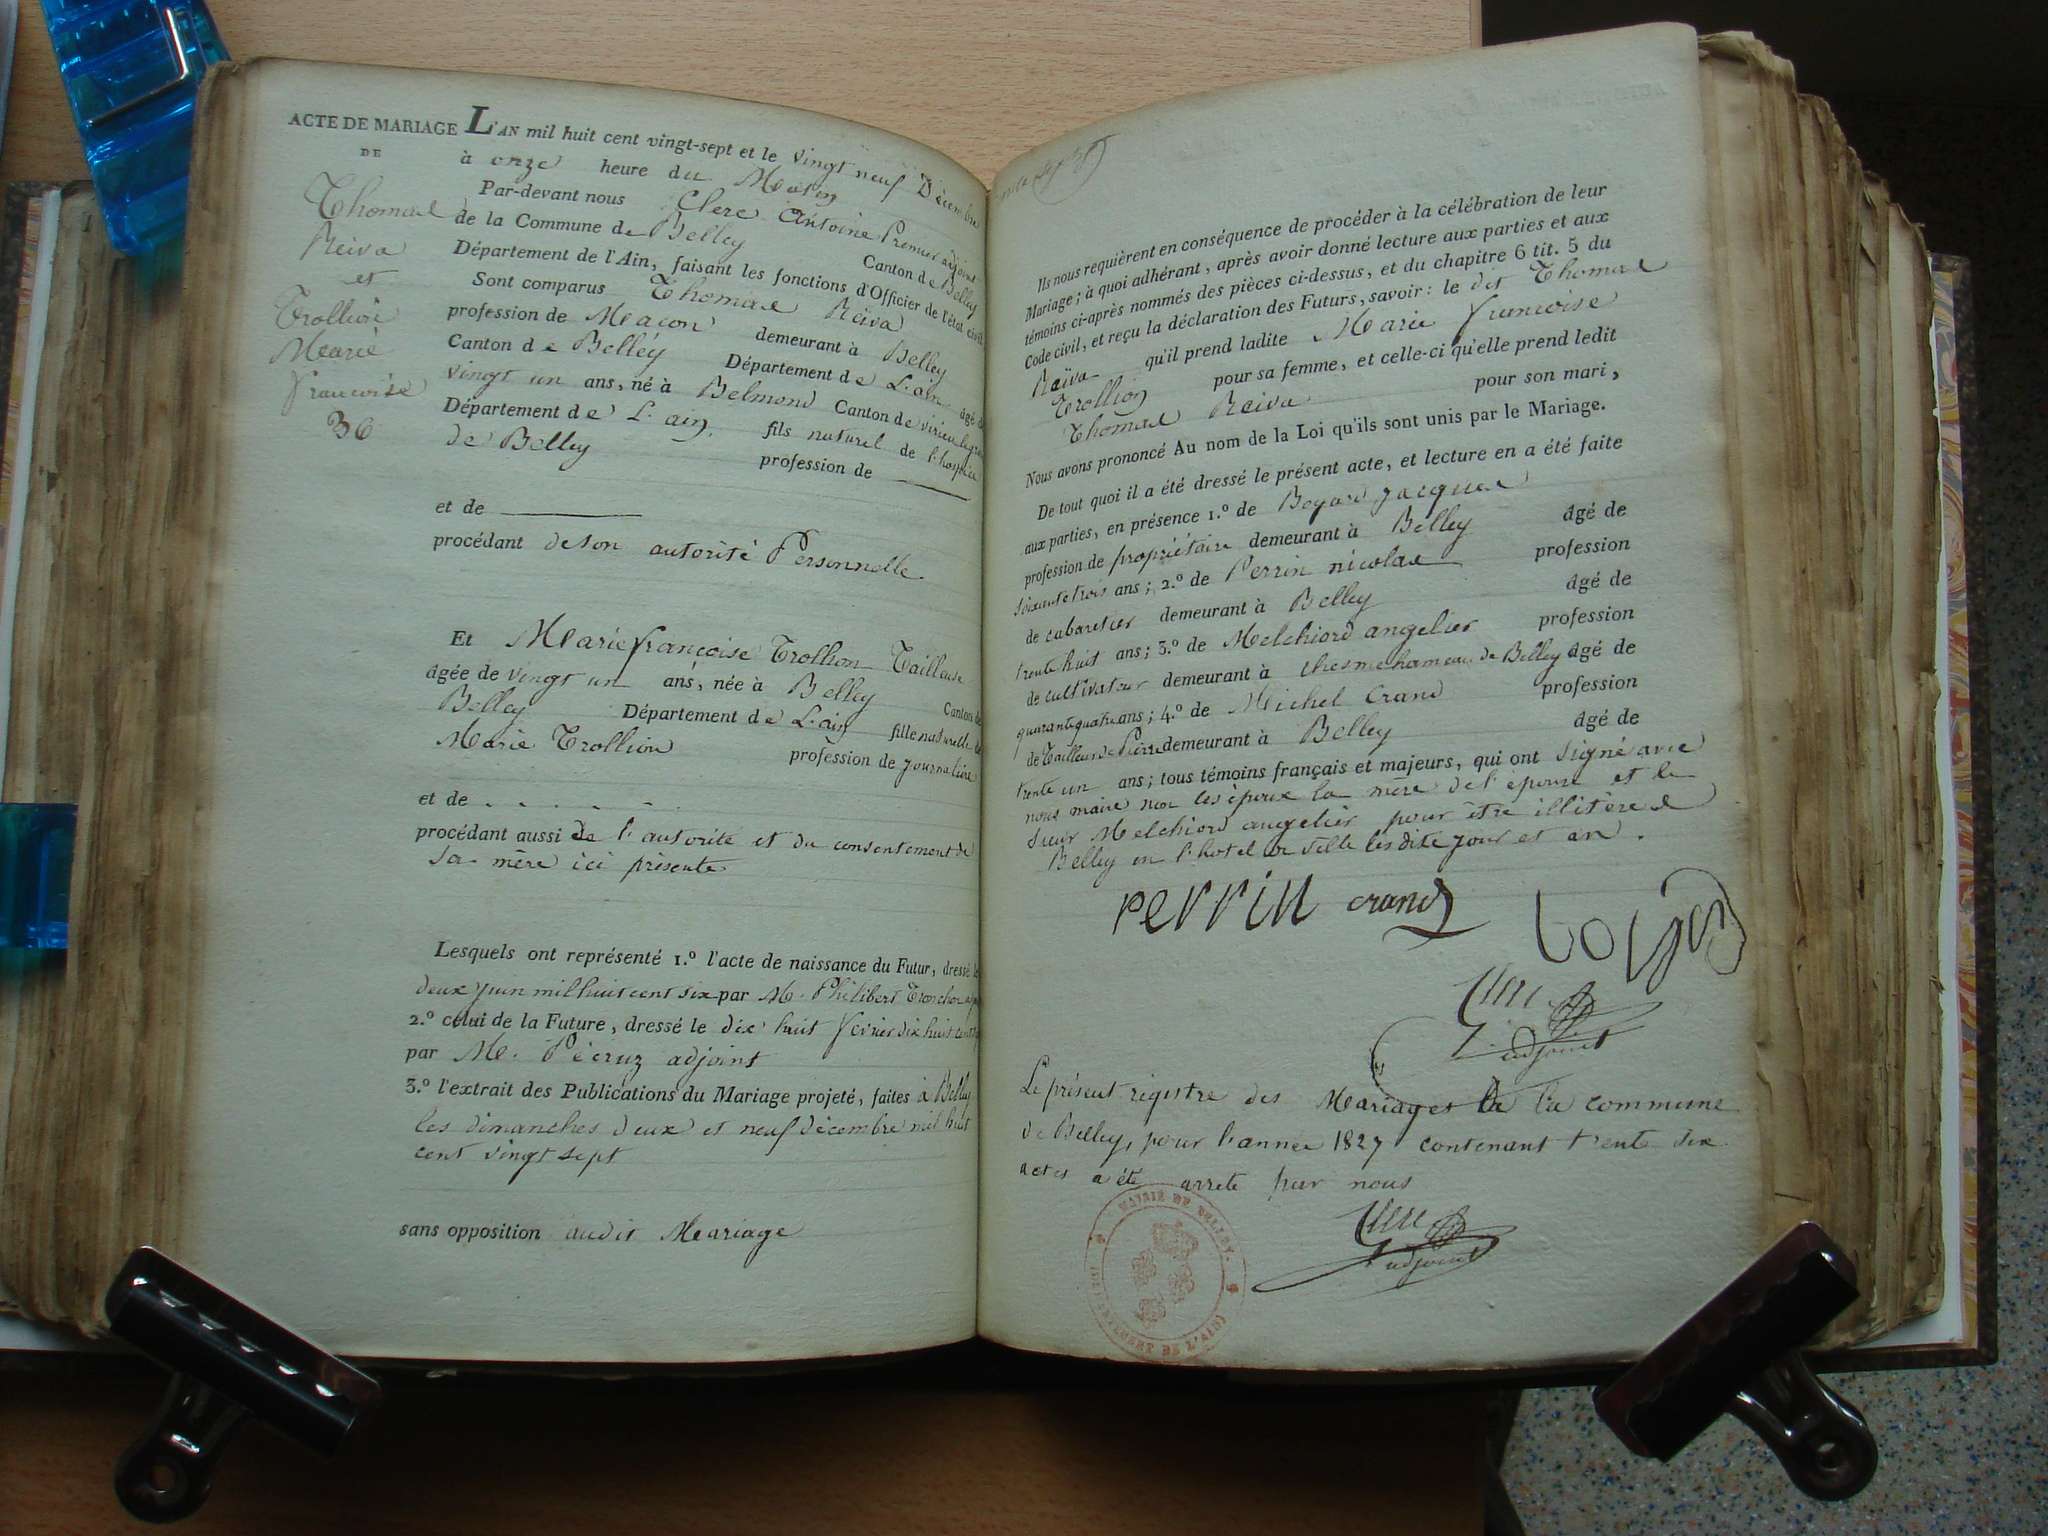 ACTE DE MARIAGE
DE
Thomas
Reiva
et
Trollion
Marie
françoise
36
L'AN mil huit cent vingt-sept et le vingt neuf Décembre
à onze heure du Matin
Par-devant nous Clerc Antoine Premier adjoint
de la Commune de Belley Canton de Belley
Département de l'Ain, faisant les fonctions d'Officier de l'état civil
Sont comparus Thomas Reiva
profession de Maçon demeurant à Belley
Canton de Belley Département de L'ain âgé de
vingt un ans, né à Belmond Canton de virieu le grand
Département de L'ain. fils naturel de l'hospice
de Belley profession de
et de
procédant de son autorité Personnelle
Et Marie françoise Trollion Tailleuse
âgée de vingt un ans, née à Belley Canton de
Belley Département de L'ain fille naturelle de
Marie Trollion profession de journalière
et de
procédant aussi de l'autorité et du consentement de
sa mère ici présente
Lesquels ont représenté 1.º l'acte de naissance du Futur, dressé le
deux juin mil huit cent six par M. Philibert Tronchon
2.º celui de la Future, dressé le dix huit fevrier dix huit cent
par M. Pécruz adjoint
3.º l'extrait des Publications du Mariage projeté, faites à Belley
les dimanches deux et neuf décembre mil huit
cent vingt sept
sans opposition audit Mariage
Ils nous requièrent en conséquence de procéder à la célébration de leur
Mariage; à quoi adhérant, après avoir donné lecture aux parties et aux
témoins ci-après nommés des pièces ci-dessus, et du chapitre 6 tit. 5 du
Code civil, et reçu la déclaration des Futurs, savoir: le dit Thomas
Raïva qu'il prend ladite Marie françoise
Trollion pour sa femme, et celle-ci qu'elle prend ledit
Thomas Reiva pour son mari,
Nous avons prononcé Au nom de la Loi qu'ils sont unis par le Mariage.
De tout quoi il a été dressé le présent acte, et lecture en a été faite
aux parties, en présence 1.º de Boyard jacques
profession de propriétaire demeurant à Belley âgé de
soixante trois ans; 2.º de Perrin nicolas profession
de cabaretier demeurant à Belley âgé de
trente huit ans; 3.º de Melchiord angelier profession
de cultivateur demeurant à chesme hameau de Belley âgé de
quarante quatre ans; 4.º de Michel Crand profession
de Tailleur de Pierre demeurant à Belley âgé de
trente un ans; tous témoins français et majeurs, qui ont signé avec
nous maire non les époux la mère de l'épouse et le
sieur Melchiord angelier pour être illitérés
Belley en l'hotel de ville lesdits jour et an.
Perrin crand
Clerc
adjoint
Le présent registre des Mariages de la commune
de Belley, pour l'année 1827 contenant trente six
actes a été arreté par nous
Clerc
adjoint
MAIRIE DE BELLEY.
(DÉPARTEMENT DE L'AIN)